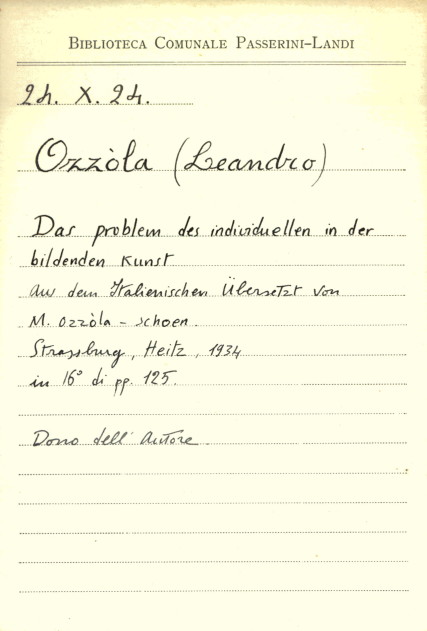 BIBLIOTECA COMUNALE PASSERINI-LANDI
2h. X. 24.
Ozzòla (Leandro)
Das problem des individuellen in der
bildenden Kunst
aus dem Italienischen Übersetzt von
M. Ozzòla - Schoen.
Strassburg, Heitz, 1934
in 16° di pp. 125.
Dono dell' Autore.